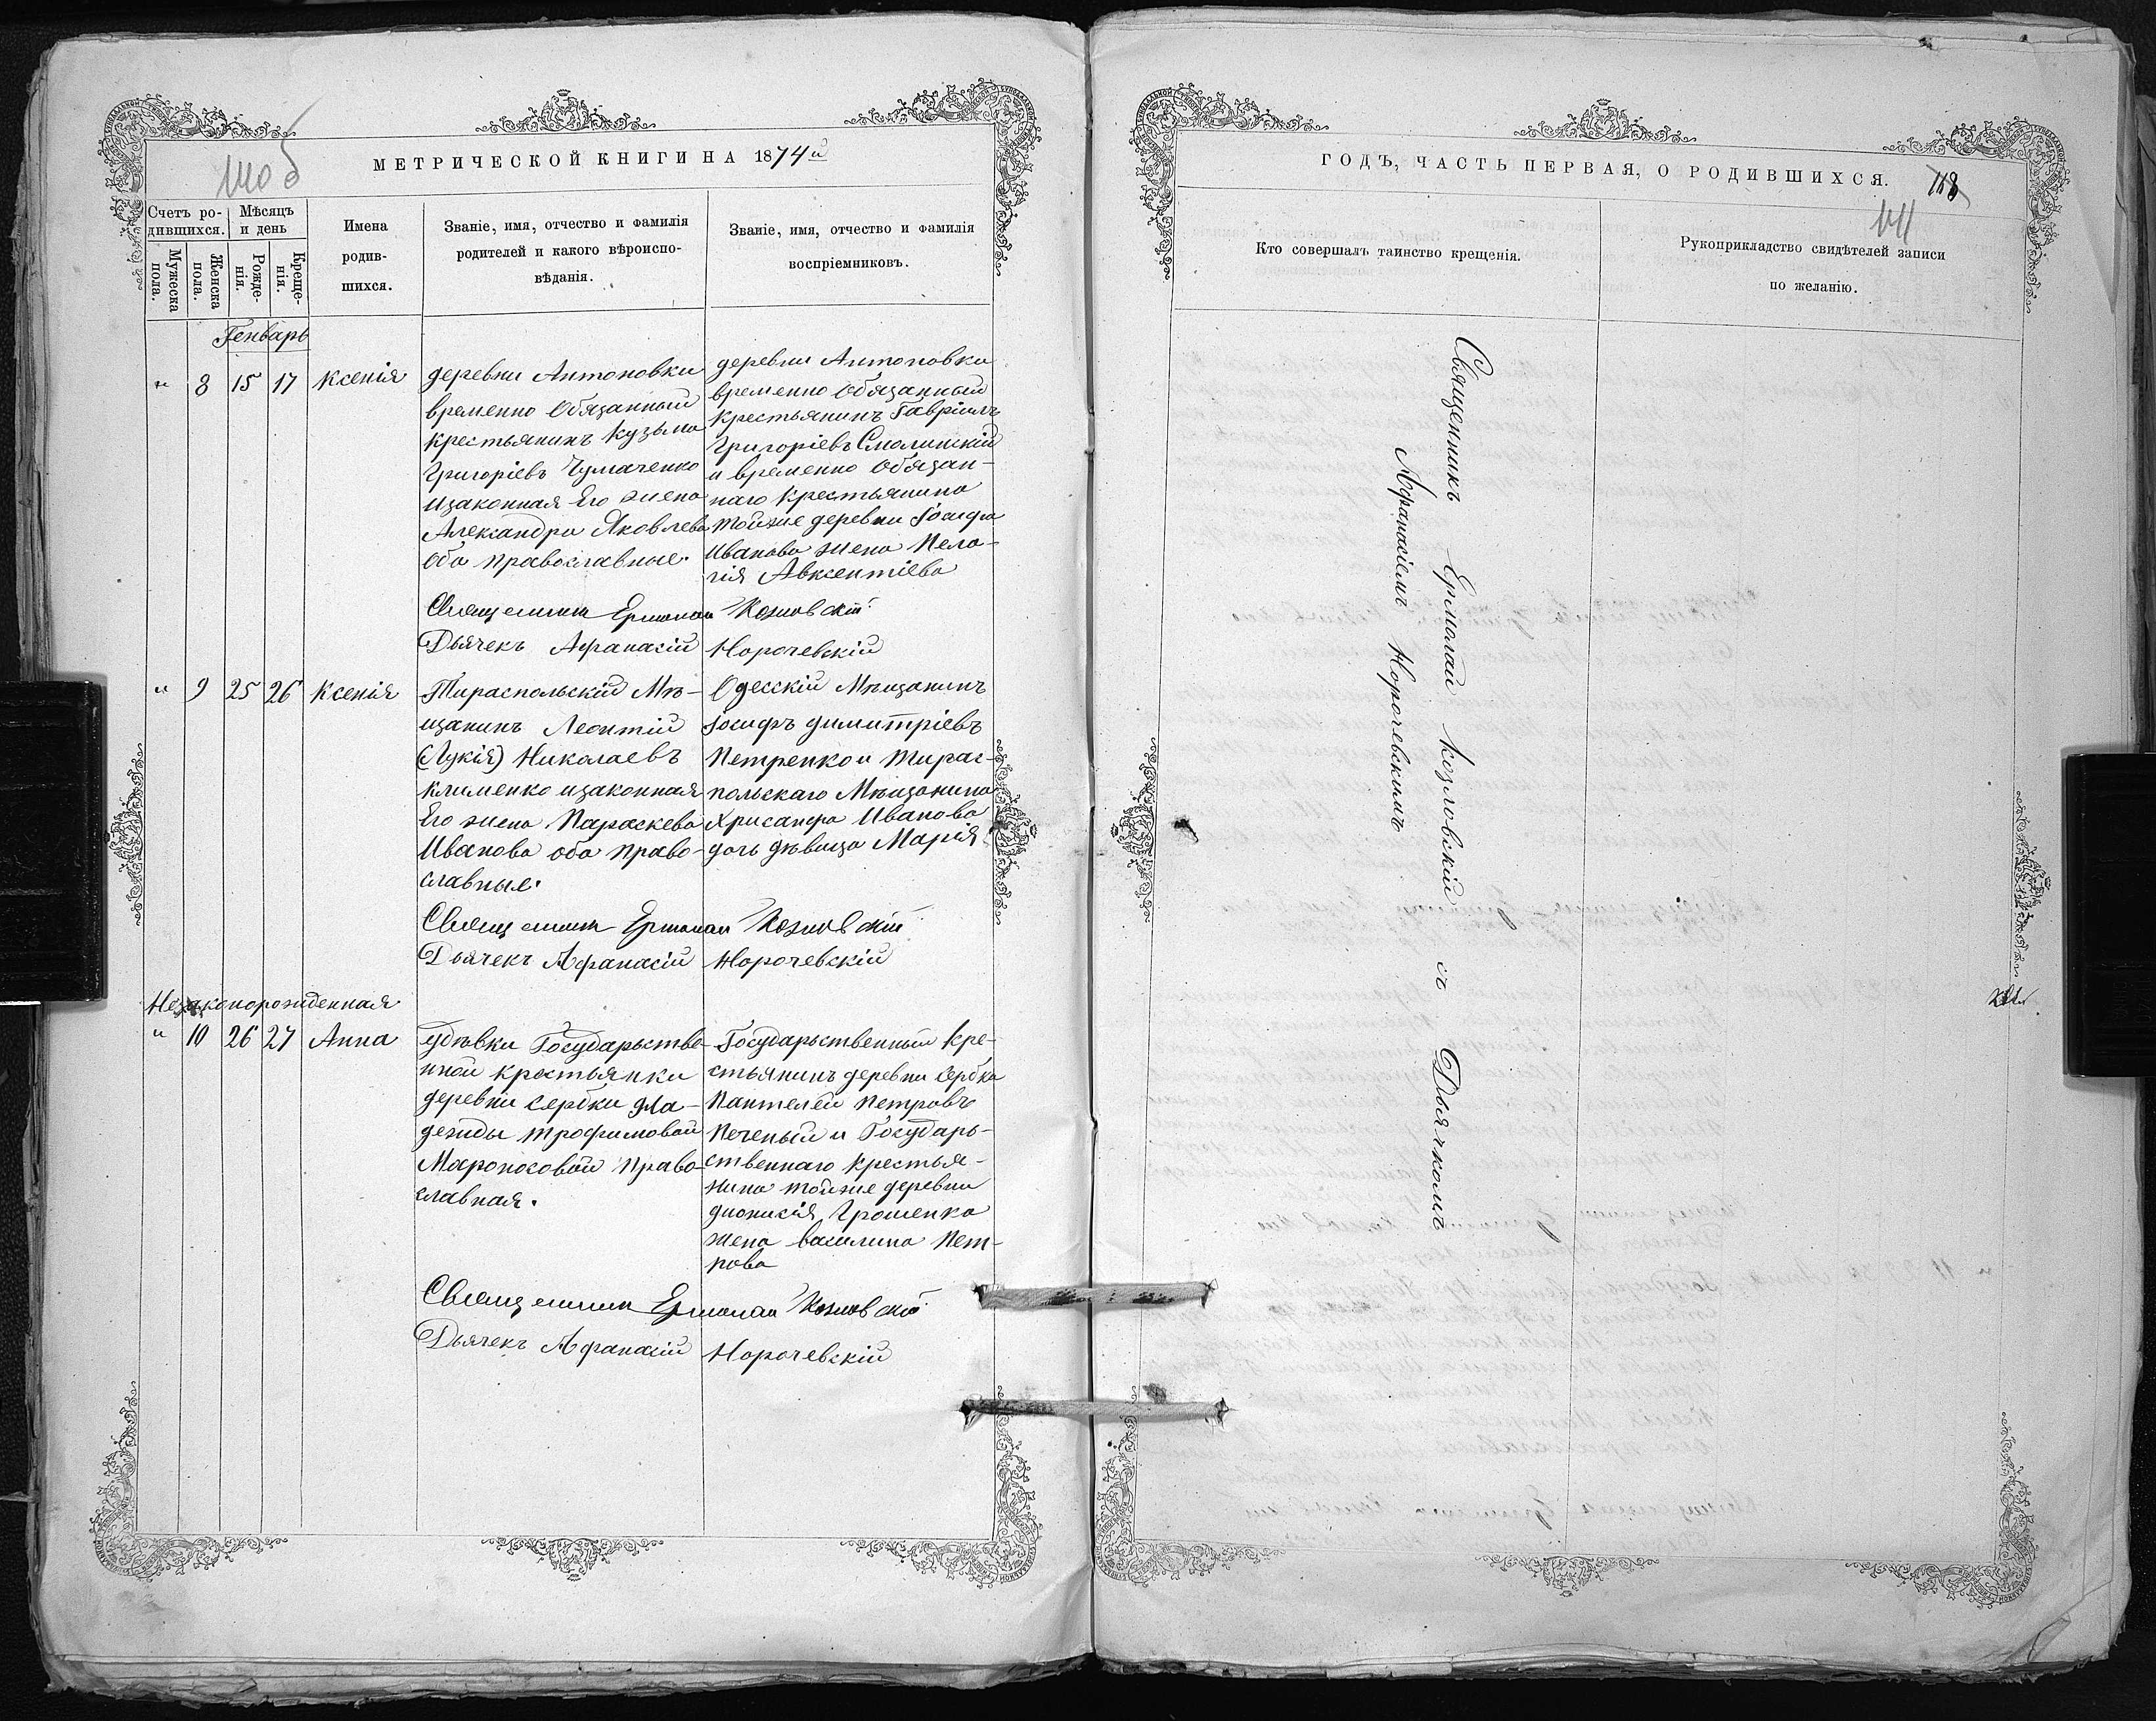 МЕТРИЧЕСКОЙ КНИГИ НА 1874й
Счетъ ро-
дившихся.
Мѣсяцъ
и день
Мужеска
пола.
Женска
пола.
Рожде-
нія.
Креще-
нія.
Имена
родив-
шихся.
Званіе, имя, отчество и фамилія
родителей и какого вѣроиспо-
вѣданія.
Званіе, имя, отчество и фамилія
воспріемниковъ.
Генварь
" 8 15 17 Ксенія
деревни Антоновки
временно обязанный
крестьянинъ Кузьма
Григоріевъ Чумаченко
изаконная Его жена
Александра Яковлева
оба православные.
деревни Антоновки
временно обязанный
крестьянинъ Гавріилъ
Григоріевъ Смолинскій
и временно обязан-
наго крестьянина
тойже деревни Іосифа
Иванова жена Пела-
гія Авксентіева
Священникъ Ермолай Козловскій
Дьячекъ Афанасій Норочевскій
" 9 25 26 Ксенія
Тираспольскій Мѣ-
щанинъ Леонтій
(Лукія) Николаевъ
Клименко изаконная
Его жена Параскева
Иванова оба право-
славные.
Одесскій Мѣщанинъ
Іосифъ Димитріевъ
Петренко и Тирас-
польскаго Мѣщанина
Хрисанфа Иванова
дочь дѣвица Марія
Священникъ Ермолай Козловскій
Дьячекъ Афанасій Норочевскій
Незаконорожденная
" 10 26 27 Анна
удѣвки Государьстве-
нной крестьянки
деревни Сербки
Трофимовой
право-
славная.
Государьственный кре-
стьянинъ деревни Сербка
Пантелей Петровъ
Печеный и Государь-
ственнаго крестья-
нина тойже деревни
Дионисія Грошенка
жена Василина Пет-
рова
Священникъ Ермолай Козловскій
Дьячекъ Афанасій Норочевскій
ГОДЪ, ЧАСТЬ ПЕРВАЯ, О РОДИВШИХСЯ.
118
Кто совершалъ таинство крещенія.
Рукоприкладство свидѣтелей записи
по желанію.
Священникъ Ермолай Козловскій съ Дьячкомъ
Афанасіемъ Норочевскимъ